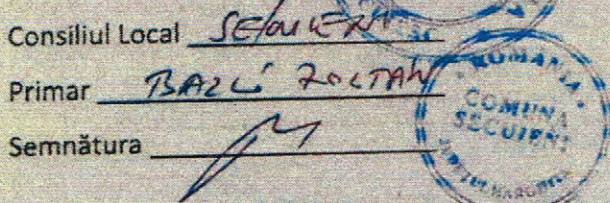 Consiliul Local SECUIENI
Primar BAZLI ZOLTAN
Semnătura
ROMANIA
COMUNA
SECUIENI
JUDEȚUL HARGHITA